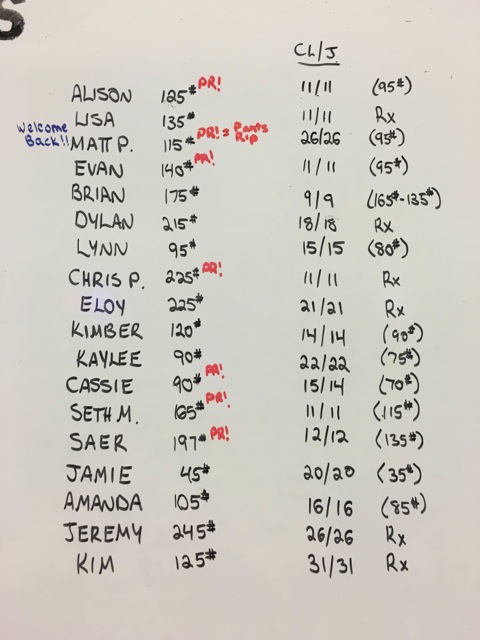 S
CL/J
ALISON 125# PR! 11/11 (95#)
LISA 135# 11/11 Rx
Welcome Back!! MATT P. 115# PR! = Pants Rip 26/26 (95#)
EVAN 140# PR! 11/11 (95#)
BRIAN 175# 9/9 (165#-135#)
DYLAN 215# 18/18 Rx
LYNN 95# 15/15 (80#)
CHRIS P. 225# PR! 11/11 Rx
ELOY 225# 21/21 Rx
KIMBER 120# 14/14 (90#)
KAYLEE 90# 22/22 (75#)
CASSIE 90# PR! 15/14 (70#)
SETH M. 165# PR! 11/11 (115#)
SAER 197# PR! 12/12 (135#)
JAMIE 45# 20/20 (35#)
AMANDA 105# 16/16 (85#)
JEREMY 245# 26/26 Rx
KIM 125# 31/31 Rx